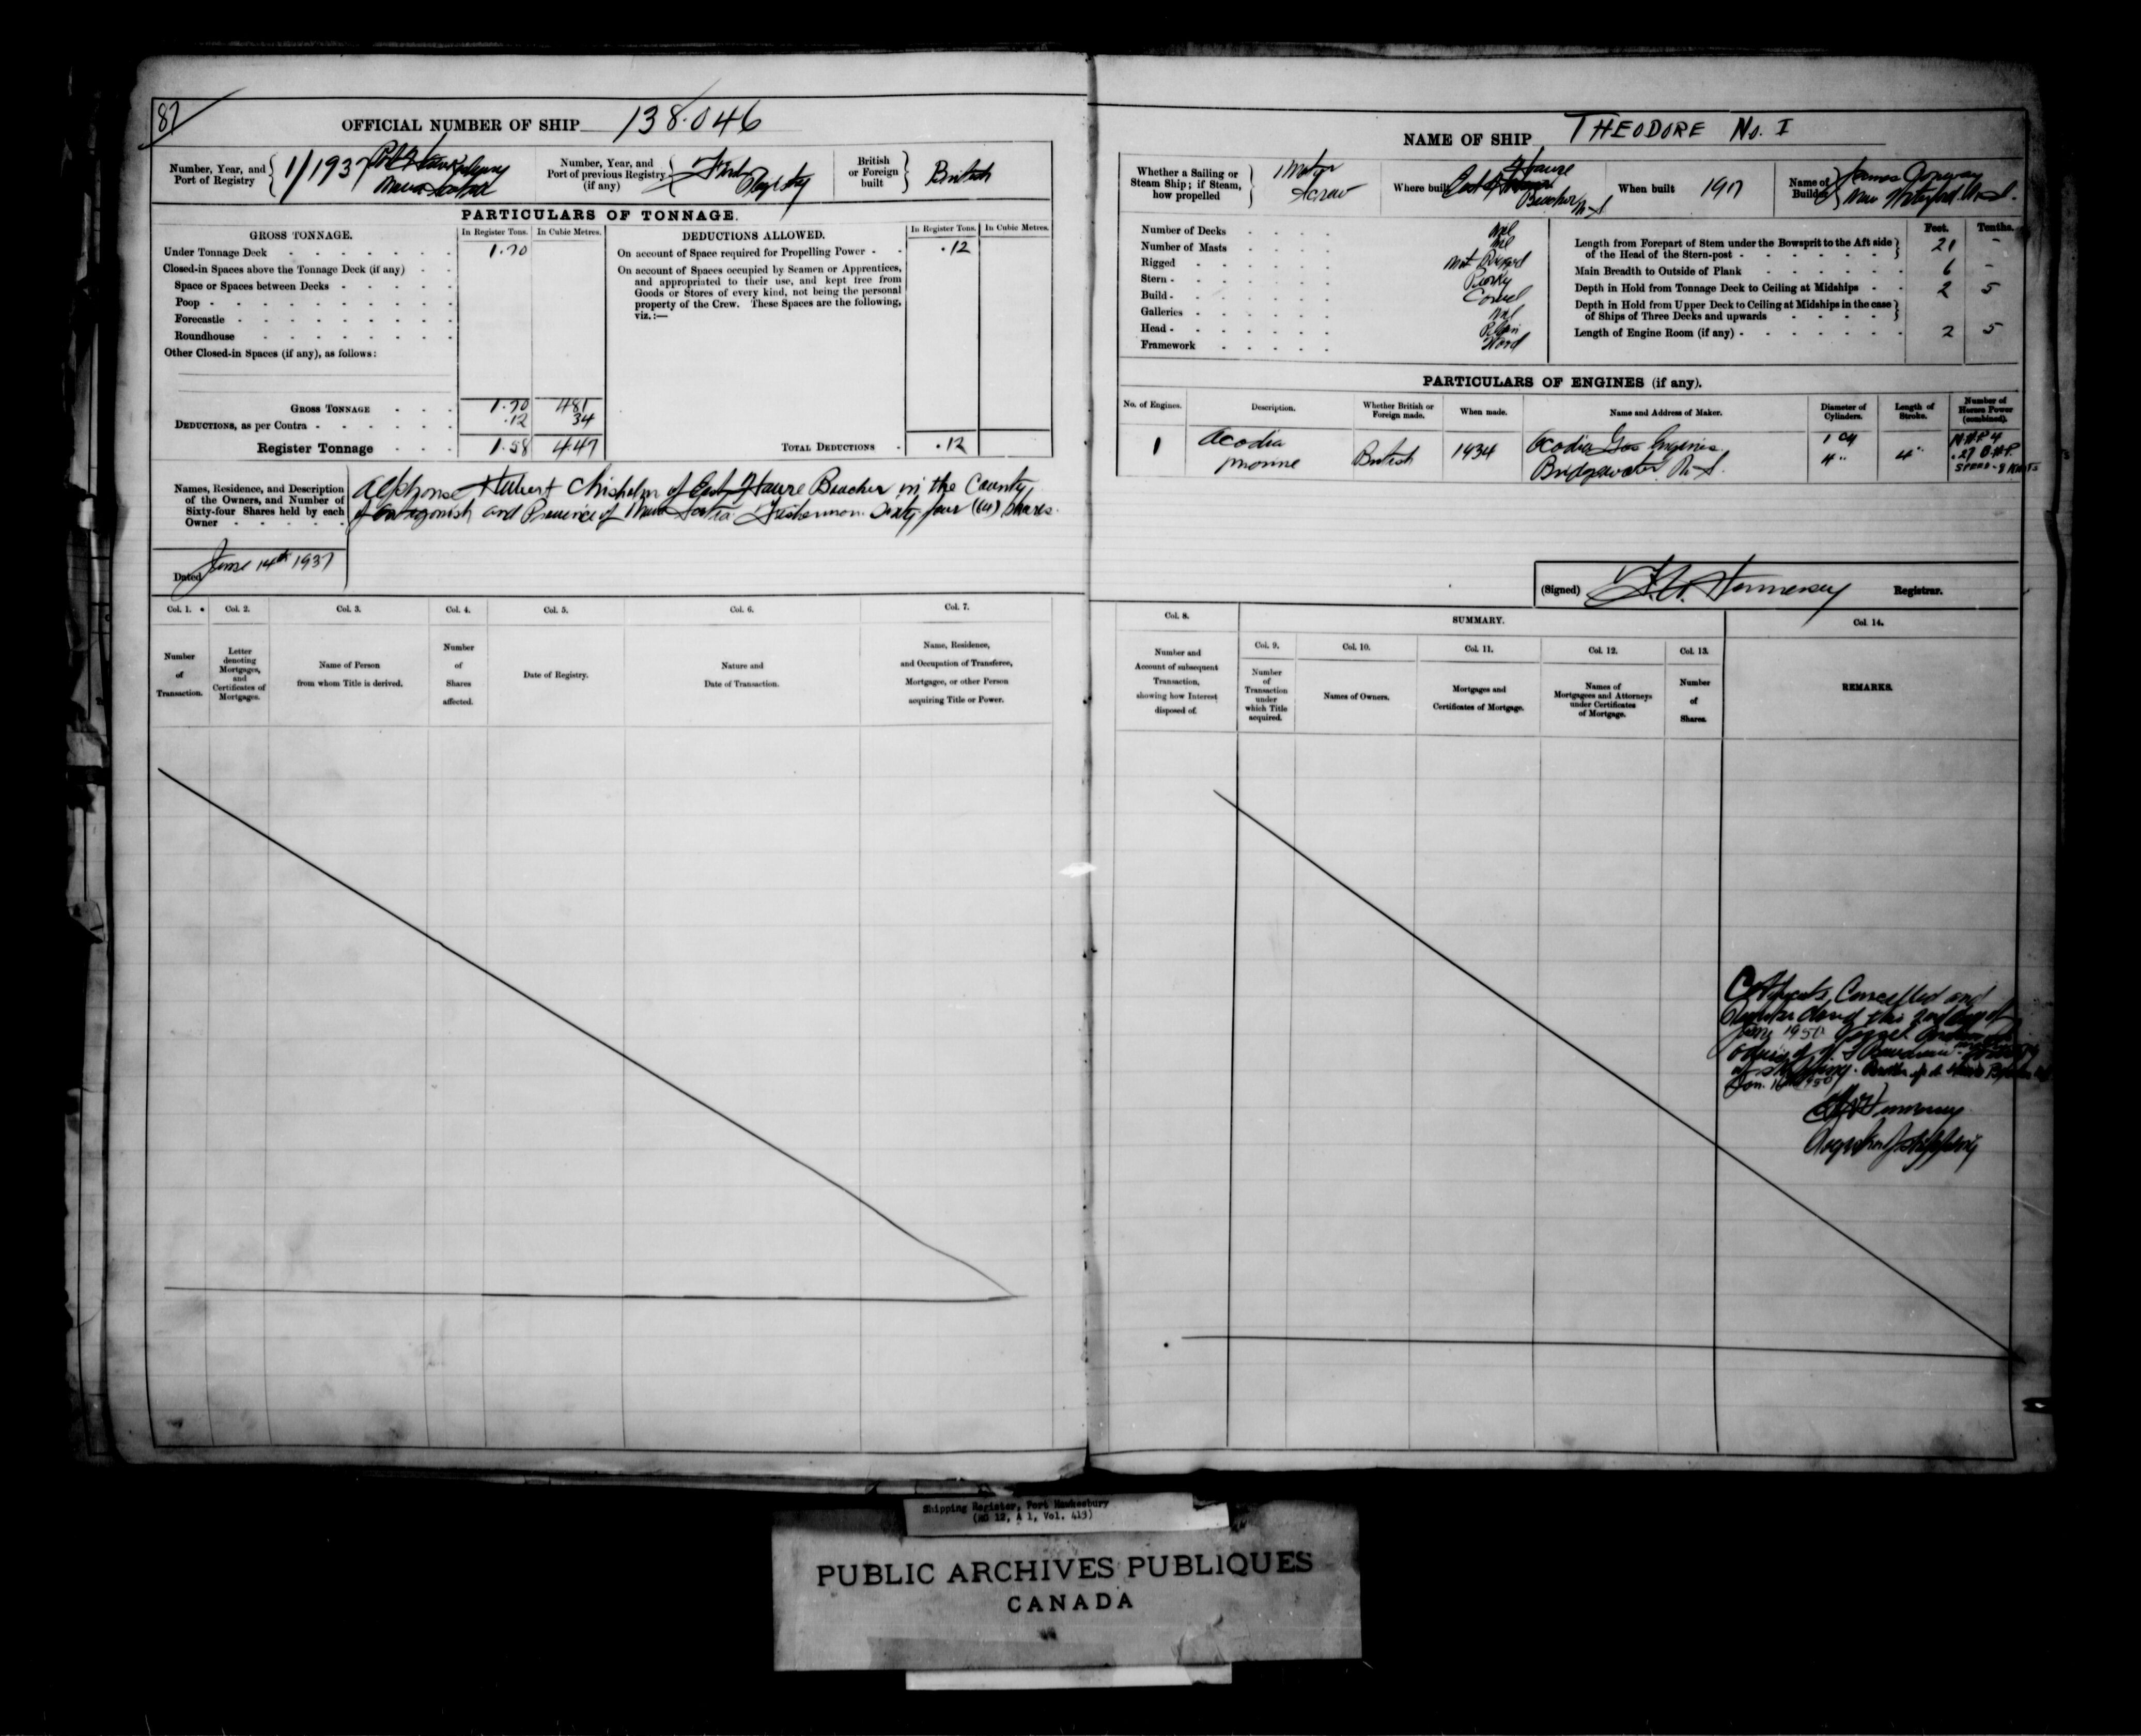 87
OFFICIAL NUMBER OF SHIP 138.046
Number, Year, and
Port of Registry
1/1937 Port Hawkesbury
Nova Scotia
Number, Year, and
Port of previous Registry
(if any)
First
Registry
British
or Foreign
built
British
PARTICULARS OF TONNAGE.
GROSS TONNAGE.
In Register Tons.
In Cubic Metres.
Under Tonnage Deck 1.70
Closed-in Spaces above the Tonnage Deck (if any)
Space or Spaces between Decks
Poop
Forecastle
Roundhouse
Other Closed-in Spaces (if any), as follows:
GROSS TONNAGE 1.70 4.81
DEDUCTIONS, as per Contra .12 34
Register Tonnage 1.58 4.47
DEDUCTIONS ALLOWED.
In Register Tons.
In Cubic Metres.
On account of Space required for Propelling Power .12
On account of Spaces occupied by Seamen or Apprentices,
and appropriated to their use, and kept free from
Goods or Stores of every kind, not being the personal
property of the Crew. These Spaces are the following,
viz.:—
TOTAL DEDUCTIONS .12
Names, Residence, and Description
of the Owners, and Number of
Sixty-four Shares held by each
Owner
Alphonse Hubert Chisholm of East Havre Boucher in the County
of Antigonish and Province of Nova Scotia. Fisherman. Sixty four (64) Shares.
Dated June 14th 1937
Col. 1.
Col. 2.
Col. 3.
Col. 4.
Col. 5.
Col. 6.
Col. 7.
Number
of
Transaction.
Letter
denoting
Mortgages,
and
Certificates of
Mortgages.
Name of Person
from whom Title is derived.
Number
of
Shares
affected.
Date of Registry.
Nature and
Date of Transaction.
Name, Residence,
and Occupation of Transferee,
Mortgagee, or other Person
acquiring Title or Power.
NAME OF SHIP THEODORE No. I
Whether a Sailing or
Steam Ship; if Steam,
how propelled
Motor
Screw
Where built East Havre
Boucher N.S
When built 1917
Name of
Builder
James
New Waterford N.S.
Number of Decks Nil
Number of Masts Nil
Rigged Not Rigged
Stern
Build Carvel
Galleries Nil
Head Plain
Framework Wood
Feet.
Tenths.
Length from Forepart of Stem under the Bowsprit to the Aft side
of the Head of the Stern-post 21 –
Main Breadth to Outside of Plank 6 –
Depth in Hold from Tonnage Deck to Ceiling at Midships 2 5
Depth in Hold from Upper Deck to Ceiling at Midships in the case
of Ships of Three Decks and upwards
Length of Engine Room (if any) 2 5
PARTICULARS OF ENGINES (if any).
No. of Engines.
Description.
Whether British or
Foreign made.
When made.
Name and Address of Maker.
Diameter of
Cylinders.
Length of
Stroke.
Number of
Horses Power
(combined).
1
Acadia
Marine
British
1934
Acadia Gas Engines
Bridgewater N.S.
1 Cy
4"
4"
N.H.P 4
.27 B.H.P.
SPEED - 8 KNOTS
(Signed) Hennessey Registrar.
Col. 8.
SUMMARY.
Col. 14.
Number and
Account of subsequent
Transaction,
showing how Interest
disposed of.
Col. 9.
Number
of
Transaction
under
which Title
acquired.
Col. 10.
Names of Owners.
Col. 11.
Mortgages and
Certificates of Mortgage.
Col. 12.
Names of
Mortgagees and Attorneys
under Certificates
of Mortgage.
Col. 13.
Number
of
Shares.
REMARKS.
Certificate Cancelled and
Register closed this 2nd day of
1950 Vessel
advice of
of Shipping.
Jan. 16th 1950
Hennessey
Registrar of Shipping
Shipping Register, Port Hawkesbury
(RG 12, A 1, Vol. 413)
PUBLIC ARCHIVES PUBLIQUES
CANADA